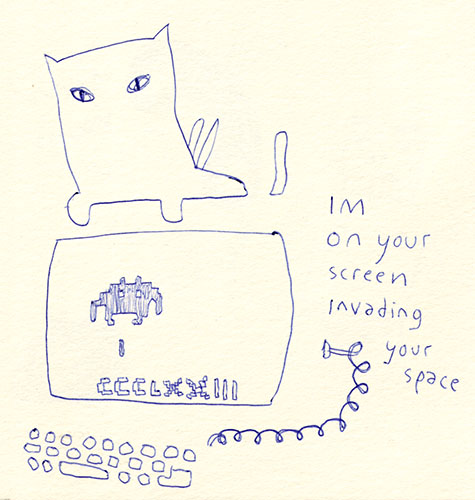 IM
on your
screen
invading
your
space